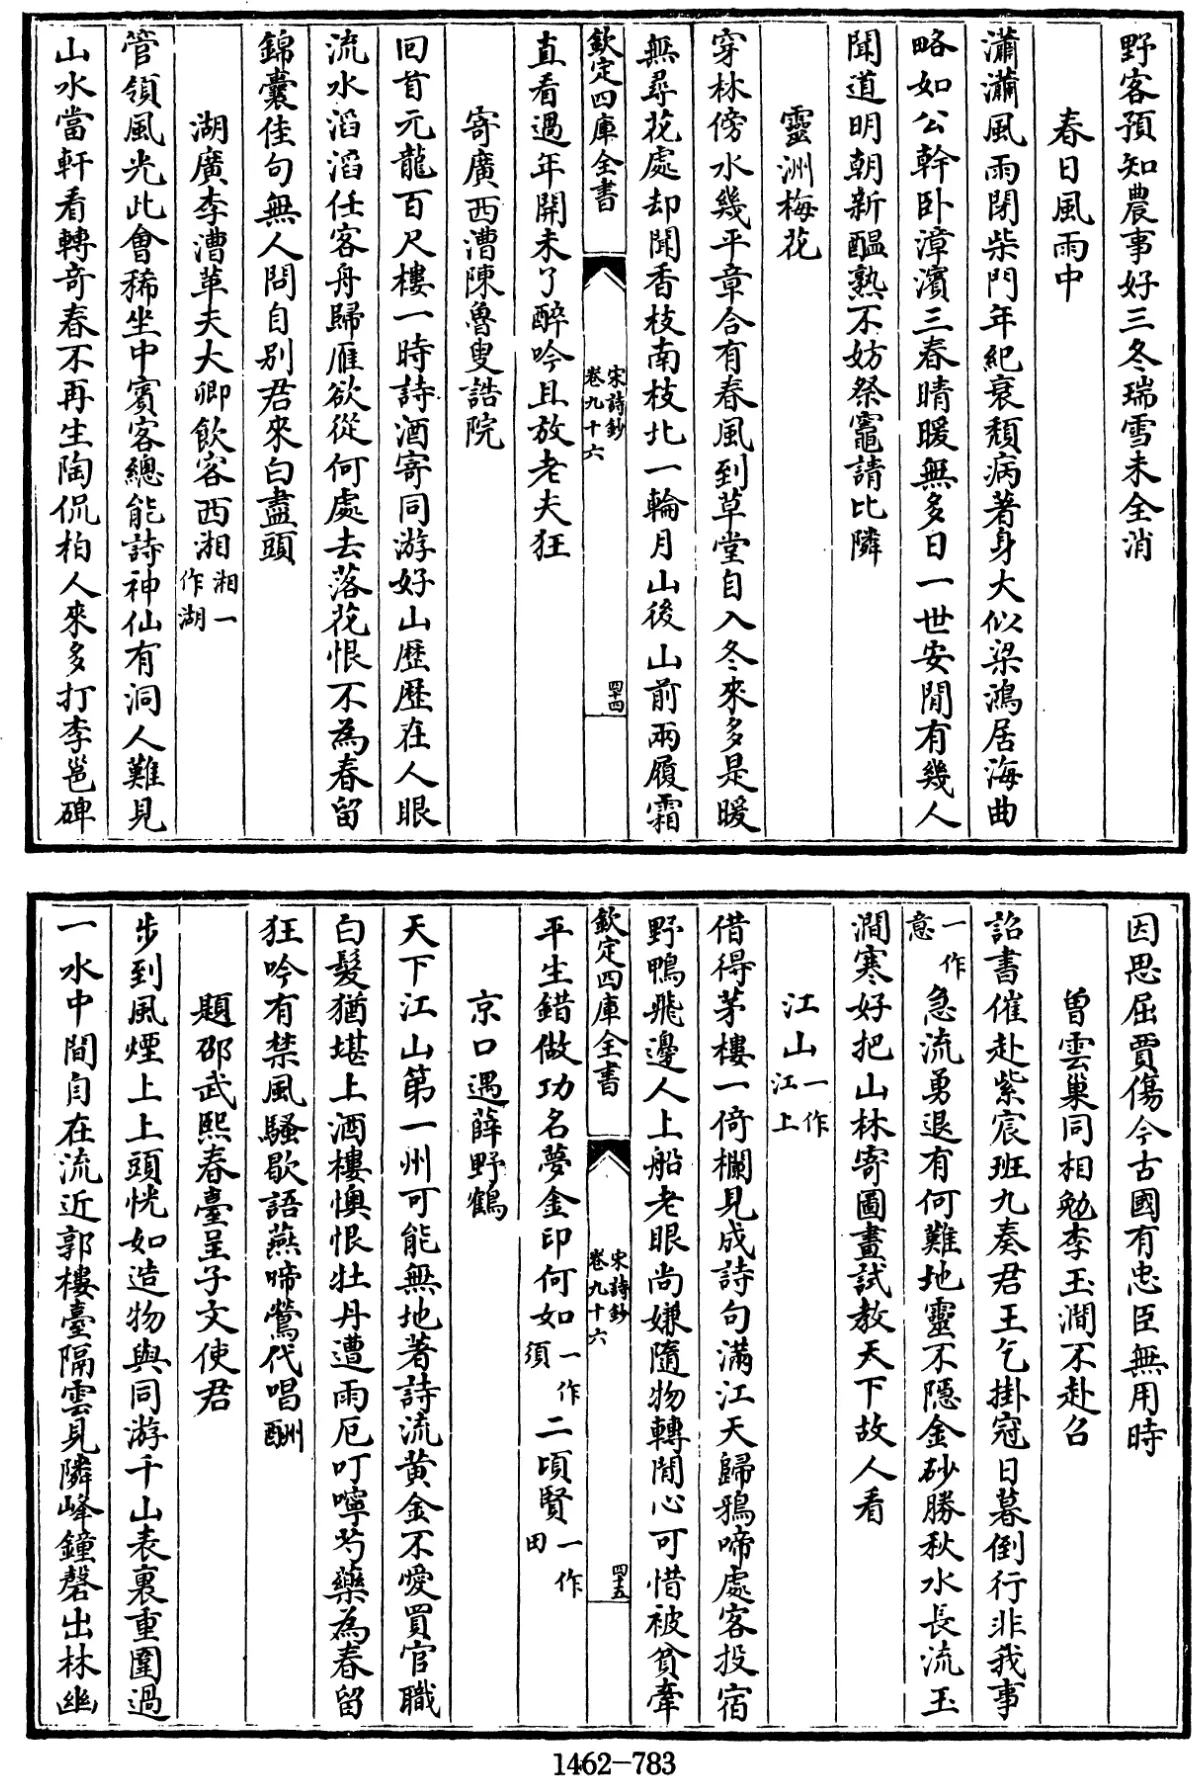 野客預知農事好三冬瑞雪未全消
春日風雨中
瀟瀟風雨閉柴門年紀衰頹病著身大似梁鴻居海曲
略如公幹卧漳濱三春晴暖無多日一世安閒有幾人
聞道明朝新醖熟不妨祭竈請比隣
靈洲梅花
穿林傍水幾平章合有春風到草堂自入冬來多是暖
無尋花處却聞香枝南枝北一輪月山後山前兩履霜
欽定四庫全書
宋詩鈔
卷九十六
四十四
直看過年開未了醉吟且放老夫狂
寄廣西漕陳魯叟誥院
回首元龍百尺樓一時詩酒寄同游好山歷歷在人眼
流水滔滔任客舟歸雁欲從何處去落花恨不為春留
錦囊佳句無人問自别君來白盡頭
湖廣李漕革夫大卿飲客西湘湘一作湖
管領風光此會稀坐中賓客總能詩神仙有洞人難見
山水當軒看轉奇春不再生陶侃柏人來多打李邕碑
因思屈賈傷今古國有忠臣無用時
曾雲巢同相勉李玉澗不赴召
詔書催赴紫宸班九奏君王乞掛冠日暮倒行非我事
一作意急流勇退有何難地靈不隱金砂勝秋水長流玉
澗寒好把山林寄圖畫試教天下故人看
江山一作江上
借得茅樓一倚欄見成詩句滿江天歸鴉啼處客投宿
野鴨飛邊人上船老眼尚嫌隨物轉閒心可惜被貧牽
欽定四庫全書
宋詩鈔
卷九十六
四十五
平生錯做功名夢金印何如一作須二頃賢一作田
京口遇薛野鶴
天下江山第一州可能無地著詩流黄金不愛買官職
白髮猶堪上酒樓懊恨牡丹遭雨厄叮嚀芍藥為春留
狂吟有禁風騷歇語燕啼鶯代唱酬
題邵武熙春臺呈子文使君
步到風煙上上頭恍如造物與同游千山表裏重圍過
一水中間自在流近郭樓臺隔雲見隣峰鐘磬出林幽
1462-783